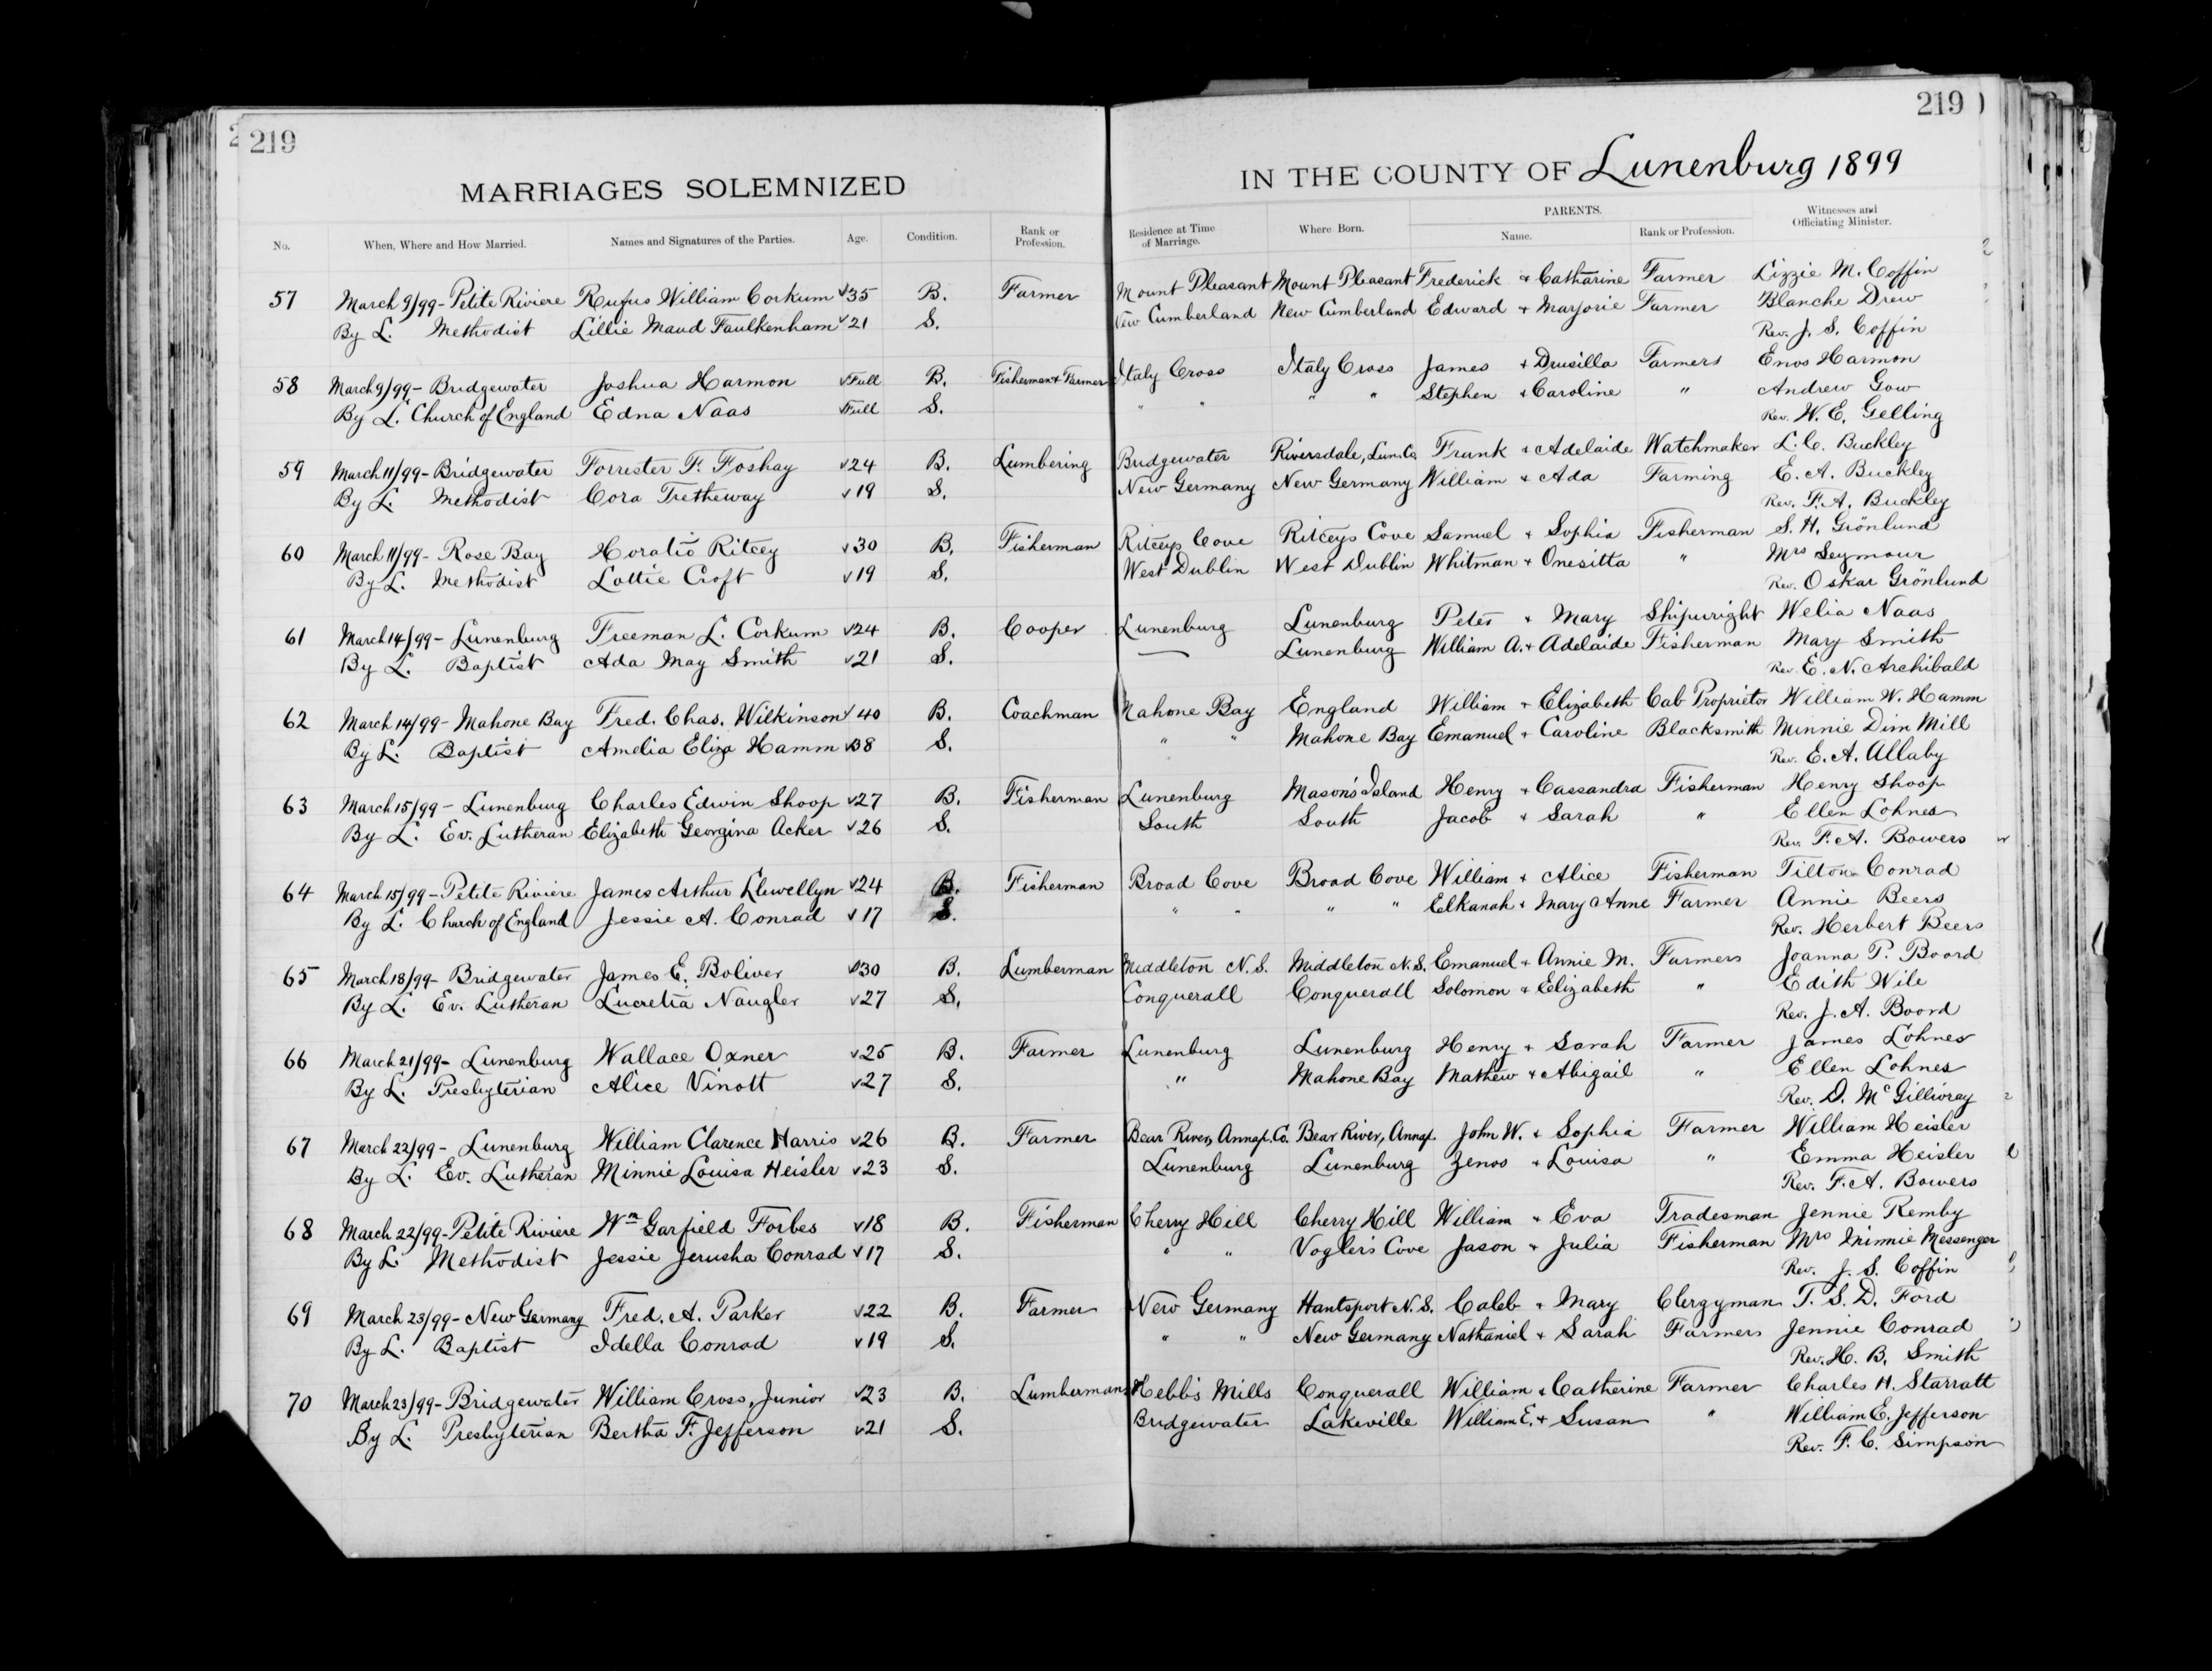 219
219
MARRIAGES SOLEMNIZED
IN THE COUNTY OF Lunenburg 1899
No. When, Where and How Married. Names and Signatures of the Parties. Age. Condition. Rank or Profession. Residence at Time of Marriage. Where Born. PARENTS. Name. Rank or Profession. Witnesses and Officiating Minister.
57 March 9/99 - Petite Riviere Rufus William Corkum 35 B. Farmer Mount Pleasant Mount Pleasant Frederick + Catharine Farmer Lizzie M. Coffin
By L. Methodist Lillie Maud Faulkenham 21 S. New Cumberland New Cumberland Edward + Marjorie Farmer Blanche Drew
Rev. J. S. Coffin
58 March 9/99 - Bridgewater Joshua Harmon Full B. Fisherman + Farmer Italy Cross Italy Cross James + Drusilla Farmers Enos Harmon
By L. Church of England Edna Naas Full S. " " " " Stephen + Caroline " Andrew Gow
Rev. W. E. Gelling
59 March 11/99 - Bridgewater Forrester F. Foshay 24 B. Lumbering Bridgewater Riversdale, Lun. Co. Frank + Adelaide Watchmaker L. C. Buckley
By L. Methodist Cora Tretheway 19 S. New Germany New Germany William + Ada Farming E. A. Buckley
Rev. F. A. Buckley
60 March 11/99 - Rose Bay Horatio Ritcey 30 B. Fisherman Ritceys Cove Ritceys Cove Samuel + Sophia Fisherman S. H. Grönlund
By L. Methodist Lottie Croft 19 S. West Dublin West Dublin Whitman + Onesitta " Mrs Seymour
Rev. Oskar Grönlund
61 March 14/99 - Lunenburg Freeman L. Corkum 24 B. Cooper Lunenburg Lunenburg Peter + Mary Shipwright Welia Naas
By L. Baptist Ada May Smith 21 S. — Lunenburg William A. + Adelaide Fisherman Mary Smith
Rev. E. N. Archibald
62 March 14/99 - Mahone Bay Fred. Chas. Wilkinson 40 B. Coachman Mahone Bay England William + Elizabeth Cab Proprietor William W. Hamm
By L. Baptist Amelia Eliza Hamm 38 S. " " Mahone Bay Emanuel + Caroline Blacksmith Minnie Dim Mill
Rev. E. A. Allaby
63 March 15/99 - Lunenburg Charles Edwin Shoop 27 B. Fisherman Lunenburg Mason's Island Henry + Cassandra Fisherman Henry Shoop
By L. Ev. Lutheran Elizabeth Georgina Acker 26 S. South South Jacob + Sarah " Ellen Lohnes
Rev. F. A. Bowers
64 March 15/99 - Petite Riviere James Arthur Llewellyn 24 B. Fisherman Broad Cove Broad Cove William + Alice Fisherman Tilton Conrad
By L. Church of England Jessie A. Conrad 17 S. " " " " Elkanah + Mary Anne Farmer Annie Beers
Rev. Herbert Beers
65 March 18/99 - Bridgewater James E. Boliver 30 B. Lumberman Middleton N.S. Middleton N.S. Emanuel + Annie M. Farmers Joanna P. Boord
By L. Ev. Lutheran Lucretia Naugler 27 S. Conquerall Conquerall Solomon + Elizabeth " Edith Wile
Rev. J. A. Boord
66 March 21/99 - Lunenburg Wallace Oxner 25 B. Farmer Lunenburg Lunenburg Henry + Sarah Farmer James Lohnes
By L. Presbyterian Alice Vinott 27 S. " Mahone Bay Mathew + Abigail " Ellen Lohnes
Rev. D. McGillivray
67 March 22/99 - Lunenburg William Clarence Harris 26 B. Farmer Bear River, Annap. Co. Bear River, Annap. John W. + Sophia Farmer William Heisler
By L. Ev. Lutheran Minnie Louisa Heisler 23 S. Lunenburg Lunenburg Zenos + Louisa " Emma Heisler
Rev. F. A. Bowers
68 March 22/99 - Petite Riviere Wm Garfield Forbes 18 B. Fisherman Cherry Hill Cherry Hill William + Eva Tradesman Jennie Remby
By L. Methodist Jessie Jerusha Conrad 17 S. " " Vogler's Cove Jason + Julia Fisherman Mrs Minnie Messenger
Rev. J. S. Coffin
69 March 23/99 - New Germany Fred. A. Parker 22 B. Farmer New Germany Hantsport N.S. Caleb + Mary Clergyman T. S. D. Ford
By L. Baptist Idella Conrad 19 S. " " New Germany Nathaniel + Sarah Farmers Jennie Conrad
Rev. H. B. Smith
70 March 23/99 - Bridgewater William Cross, Junior 23 B. Lumberman Hebb's Mills Conquerall William + Catherine Farmer Charles H. Starratt
By L. Presbyterian Bertha F. Jefferson 21 S. Bridgewater Lakeville William E. + Susan " William E. Jefferson
Rev. F. C. Simpson